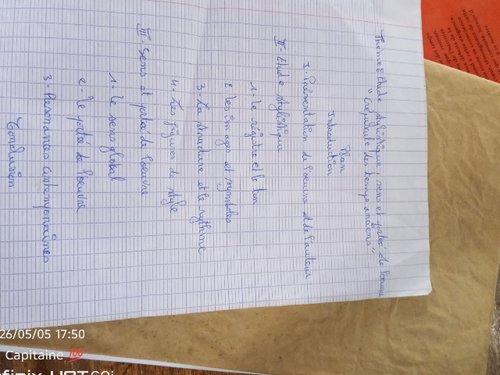 Thème: Etude stylistique, sens et portée de l'œuvre
" du temps "
Plan
Introduction
I. Présentation de l'œuvre et de l'auteur
II- Etude stylistique
1- Le registre et le ton
2. Les images et symboles
3- La structure et le rythme
4- Les figures de style
III- Sens et portée de l'œuvre
1. Le sens global
2- la portée de l'œuvre
3. Résonances contemporaines
Conclusion
26/05/05 17:50
Capitaine 💯